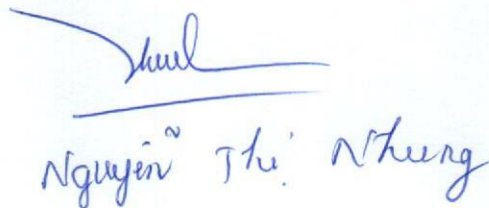 Nguyễn Thị Nhung